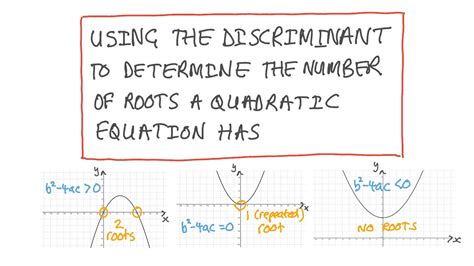 USING THE DISCRIMINANT
TO DETERMINE THE NUMBER
OF ROOTS A QUADRATIC
EQUATION HAS
y
b²-4ac>0
x
2
roots
y
x
1 (repeated)
b²-4ac=0 root
y
b²-4ac<0
NO ROOTS
x